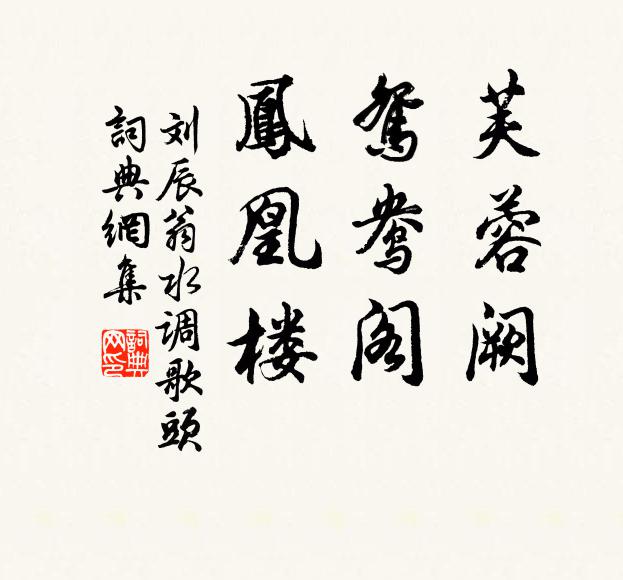 芙蓉阙
鸳鸯阁
鳳凰楼
刘辰翁水调歌頭
詞典網集
詞典
网印